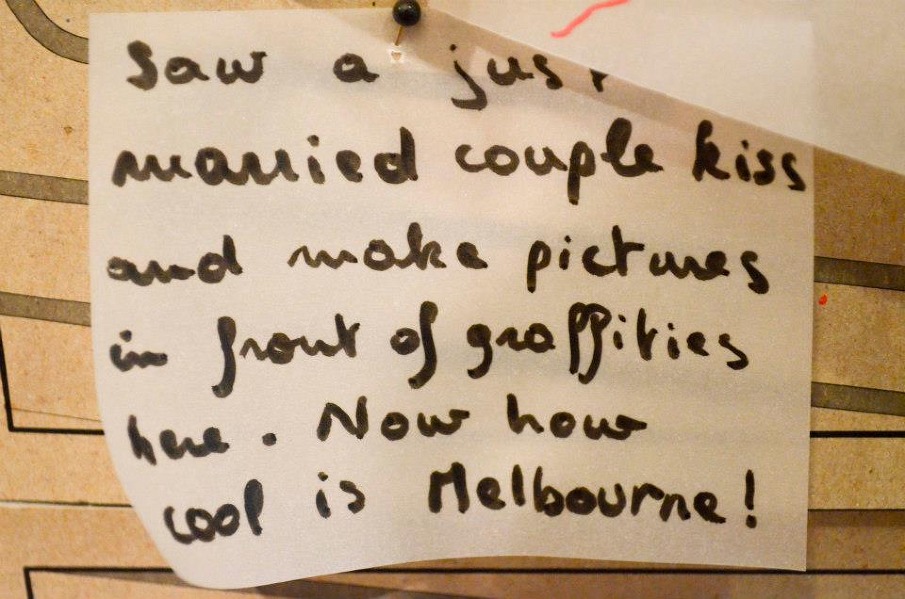 Saw a just
married couple kiss
and make pictures
in front of graffities
here. Now how
cool is Melbourne!